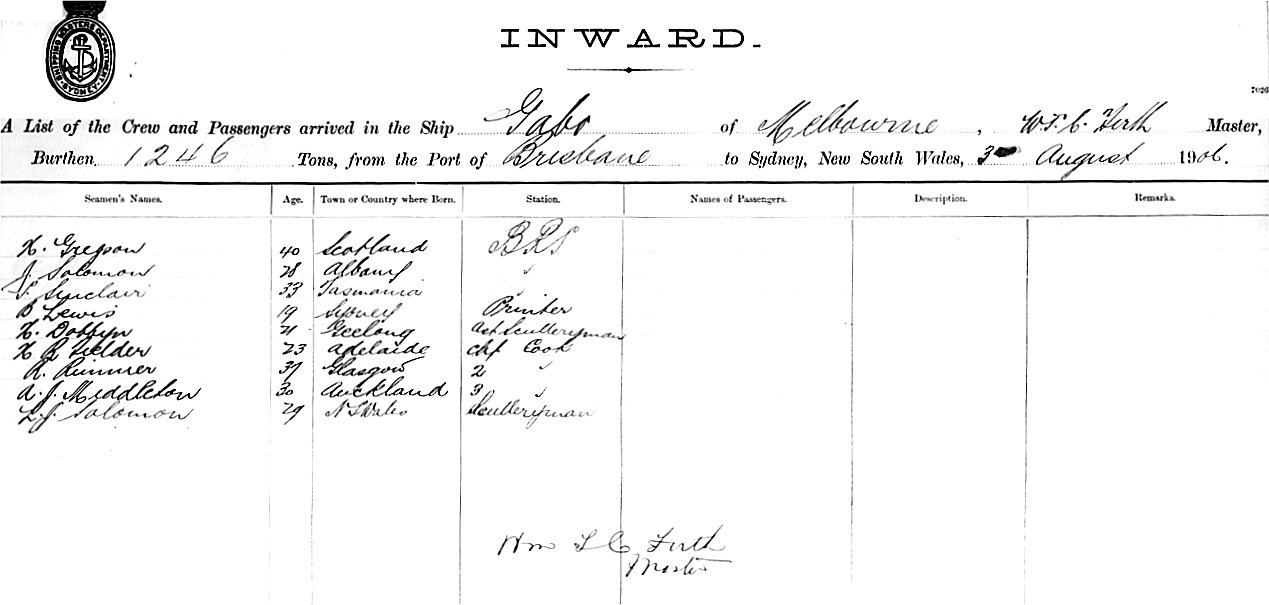 SHIPPING MASTERS DEPARTMENT SYDNEY
INWARD.
7026
A List of the Crew and Passengers arrived in the Ship Gabo of Melbourne, W.T.C. Firth Master,
Burthen 1246 Tons, from the Port of Brisbane to Sydney, New South Wales, 3 August 1906.
Seamen's Names. Age. Town or Country where Born. Station. Names of Passengers. Description. Remarks.
H. Gregson 40 Scotland BRS
J. Solomon 28 Albany "
Sinclair 33 Tasmania "
B Lewis 19 Sydney Printer
H. Dobbyn 21 Geelong Ast Sculleryman
H B Fielder 23 Adelaide chf Cook
R. Rimmer 37 Glasgow 2 "
A. J. Middleton 30 Auckland 3 "
L. J. Solomon 29 N S Wales Sculleryman
Wm T C Firth
Master